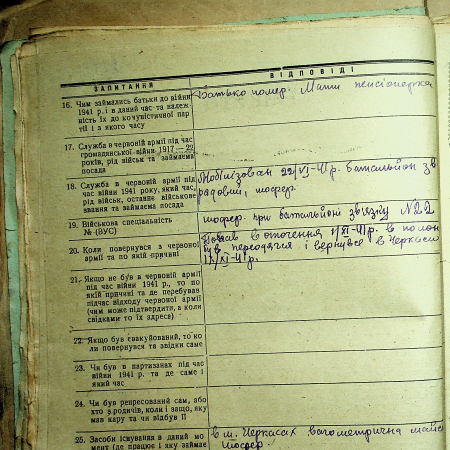 ЗАПИТАННЯ
ВІДПОВІДІ
16. Чим займались батьки до війни
1941 р. і в даний час та належ-
ність їх до комуністичної пар-
тії і з якого часу
Батько помер. Мати пенсіонерка
17. Служба в червоній армії під час
громадянської війни 1917—22
років, рід військ та займаема
посада
18. Служба в червоній армії під
час війни 1941 року, який час,
рід військ, останнє військове
звання та займаєма посада
Мобілізован 22/VI-41 р. батальйон зв
радовий, шофер
19. Військова спеціальність
№ (ВУС)
шофер при батальйоні зв'язку №22
20. Коли повернувся з червоної
армії та по якій причині
в оточення 1/XI-41 р. в полон
був і вернувся в Черкаси
/XI-41 р.
21. Якщо не був в червоній армії
під час війни 1941 р., то по
якій причині та де перебував
підчас відходу червоної армії
(чим може підтвердити, а коли
свідками то їх адреса)
22. Якщо був евакуйований, то ко-
ли повернувся та звідки саме
23. Чи був в партизанах під час
війни 1941 р. та де саме і
який час
24. Чи був репресований сам, або
хто з родичів, коли і защо, яку
мав кару та чи відбув її
25. Засоби існування в даний мо-
мент (де працює і яку займає
в м. Черкасах
шофер